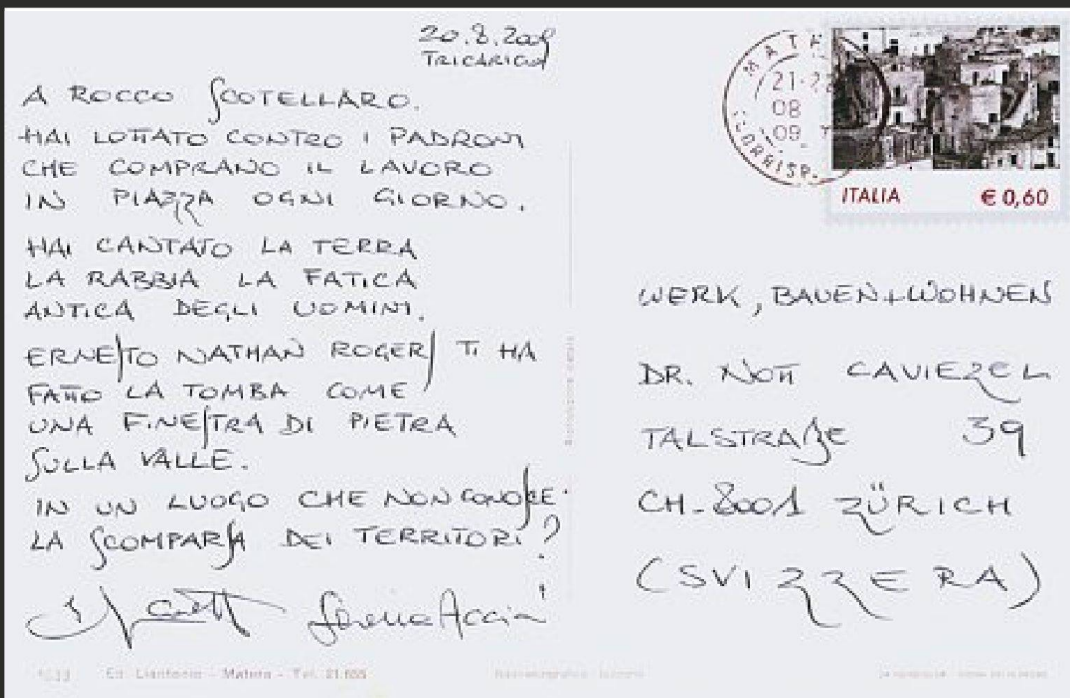 20.8.2009
TRICARICO
A ROCCO SCOTELLARO.
HAI LOTTATO CONTRO I PADRONI
CHE COMPRANO IL LAVORO
IN PIAZZA OGNI GIORNO.
HAI CANTATO LA TERRA
LA RABBIA LA FATICA
ANTICA DEGLI UOMINI.
ERNESTO NATHAN ROGERS TI HA
FATTO LA TOMBA COME
UNA FINESTRA DI PIETRA
SULLA VALLE.
IN UN LUOGO CHE NON CONOSCE
LA SCOMPARSA DEI TERRITORI?
Ed. Lianfonio - Matera - Tel. 21.655
21-
08
09
ITALIA € 0,60
WERK, BAUEN+WOHNEN
DR. NOTT CAVIEZEL
TALSTRAßE 39
CH-8001 ZÜRICH
(SVIZZERA)